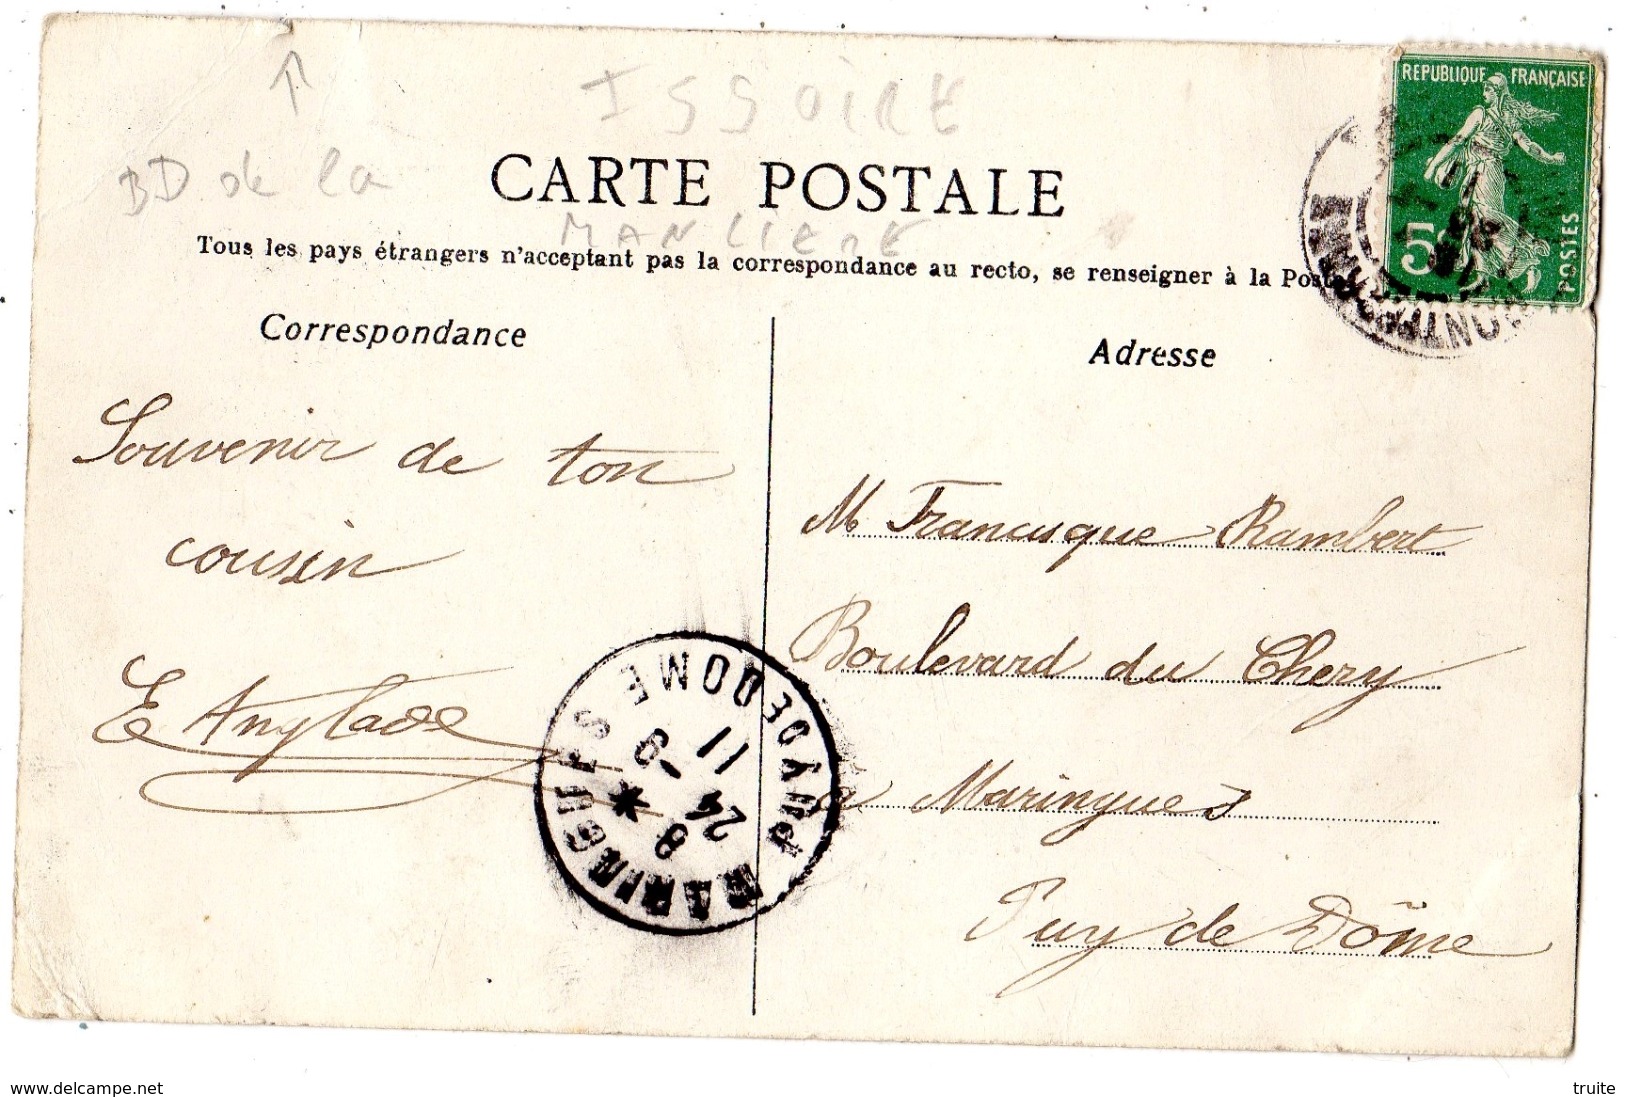 ISSOIRE
BD de la
MANLIERE
CARTE POSTALE
Tous les pays étrangers n'acceptant pas la correspondance au recto, se renseigner à la Poste
REPUBLIQUE FRANÇAISE
5
POSTES
Correspondance
Souvenir de ton
cousin
E Anglade
MARINGUES
PUY DE DOME
8
24 -9
11
Adresse
M Francisque Rambert
Boulevard du Chery
à Maringues
Puy de Dôme
delcampe.net
truite